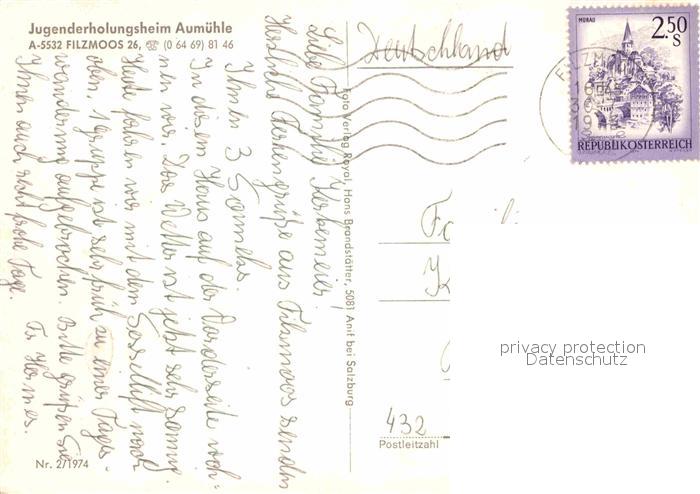 Jugenderholungsheim Aumühle
A-5532 FILZMOOS 26, ☎ (0 64 69) 81 46
Liebe Familie
Herzliche Feriengrüße aus Filzmoos senden
Ihnen 3 Sormeks.
In diesem Haus auf der Vorderseite woh-
nen wir. Das Wetter ist jetzt sehr sonnig.
Heute fahren wir mit dem Sessellift nach
oben. 1 Gruppe ist sehr früh zu einer Tages-
wanderung aufgebrochen. Bitte grüßen Sie
Ihnen auch recht frohe Tage.
Fr. Hermes.
Nr. 2/1974
Foto Verlag Royal, Hans Brandstätter, 5081 Anif bei Salzburg
Deutschland
MURAU
2.50
S
REPUBLIK ÖSTERREICH
FILZM
432
Postleitzahl
privacy protection
Datenschutz